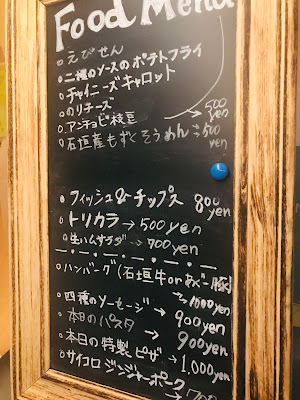 Food Menu
○ えびせん
○ 二種のソースのポテトフライ
○ チャイニーズキャロット
○ のりチーズ
○ アンチョビ枝豆 → 500 yen
○ 石垣産もずくそうめん → 500 yen
○ フィッシュ&チップス 800 yen
○ トリカラ → 500 yen
○ 生ハムサラダ → 700 yen
○ ハンバーグ (石垣牛 or あぐー豚)
→ 1000 yen
○ 四種のソーセージ → 900 yen
○ 本日のパスタ → 900 yen
○ 本日の特製ピザ → 1,000 yen
○ サイコロジンジャーポーク → 700